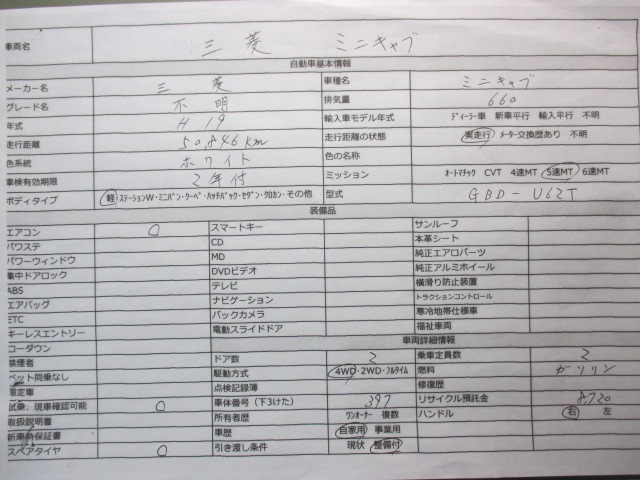 車両名 三菱 ミニキャブ
自動車基本情報
メーカー名 三菱 車種名 ミニキャブ
グレード名 不明 排気量 660
年式 H19 輸入車モデル年式 ディーラー車 新車平行 輸入平行 不明
走行距離 50,846km 走行距離の状態 実走行 メーター交換歴あり 不明
色系統 ホワイト 色の名称
車検有効期限 2年付 ミッション オートマチック CVT 4速MT 5速MT 6速MT
ボディタイプ 軽・ステーションW・ミニバン・クーペ・ハッチバック・セダン・クロカン・その他 型式 GBD-U62T
装備品
エアコン ○ スマートキー サンルーフ
パワステ CD 本革シート
パワーウィンドウ MD 純正エアロパーツ
集中ドアロック DVDビデオ 純正アルミホイール
ABS テレビ 横滑り防止装置
エアバッグ ナビゲーション トラクションコントロール
ETC バックカメラ 寒冷地帯仕様車
キーレスエントリー 電動スライドドア 福祉車両
ローダウン 車両詳細情報
禁煙者 ドア数 2 乗車定員数 2
ペット同乗なし 駆動方式 4WD・2WD・フルタイム 燃料 ガソリン
限定車 点検記録簿 修復歴
試乗、現車確認可能 ○ 車体番号(下3けた) 397 リサイクル預託金 8,720
取扱説明書 所有者歴 ワンオーナー 複数 ハンドル 右 左
新車時保証書 車歴 自家用 事業用
スペアタイヤ ○ 引き渡し条件 現状 整備付